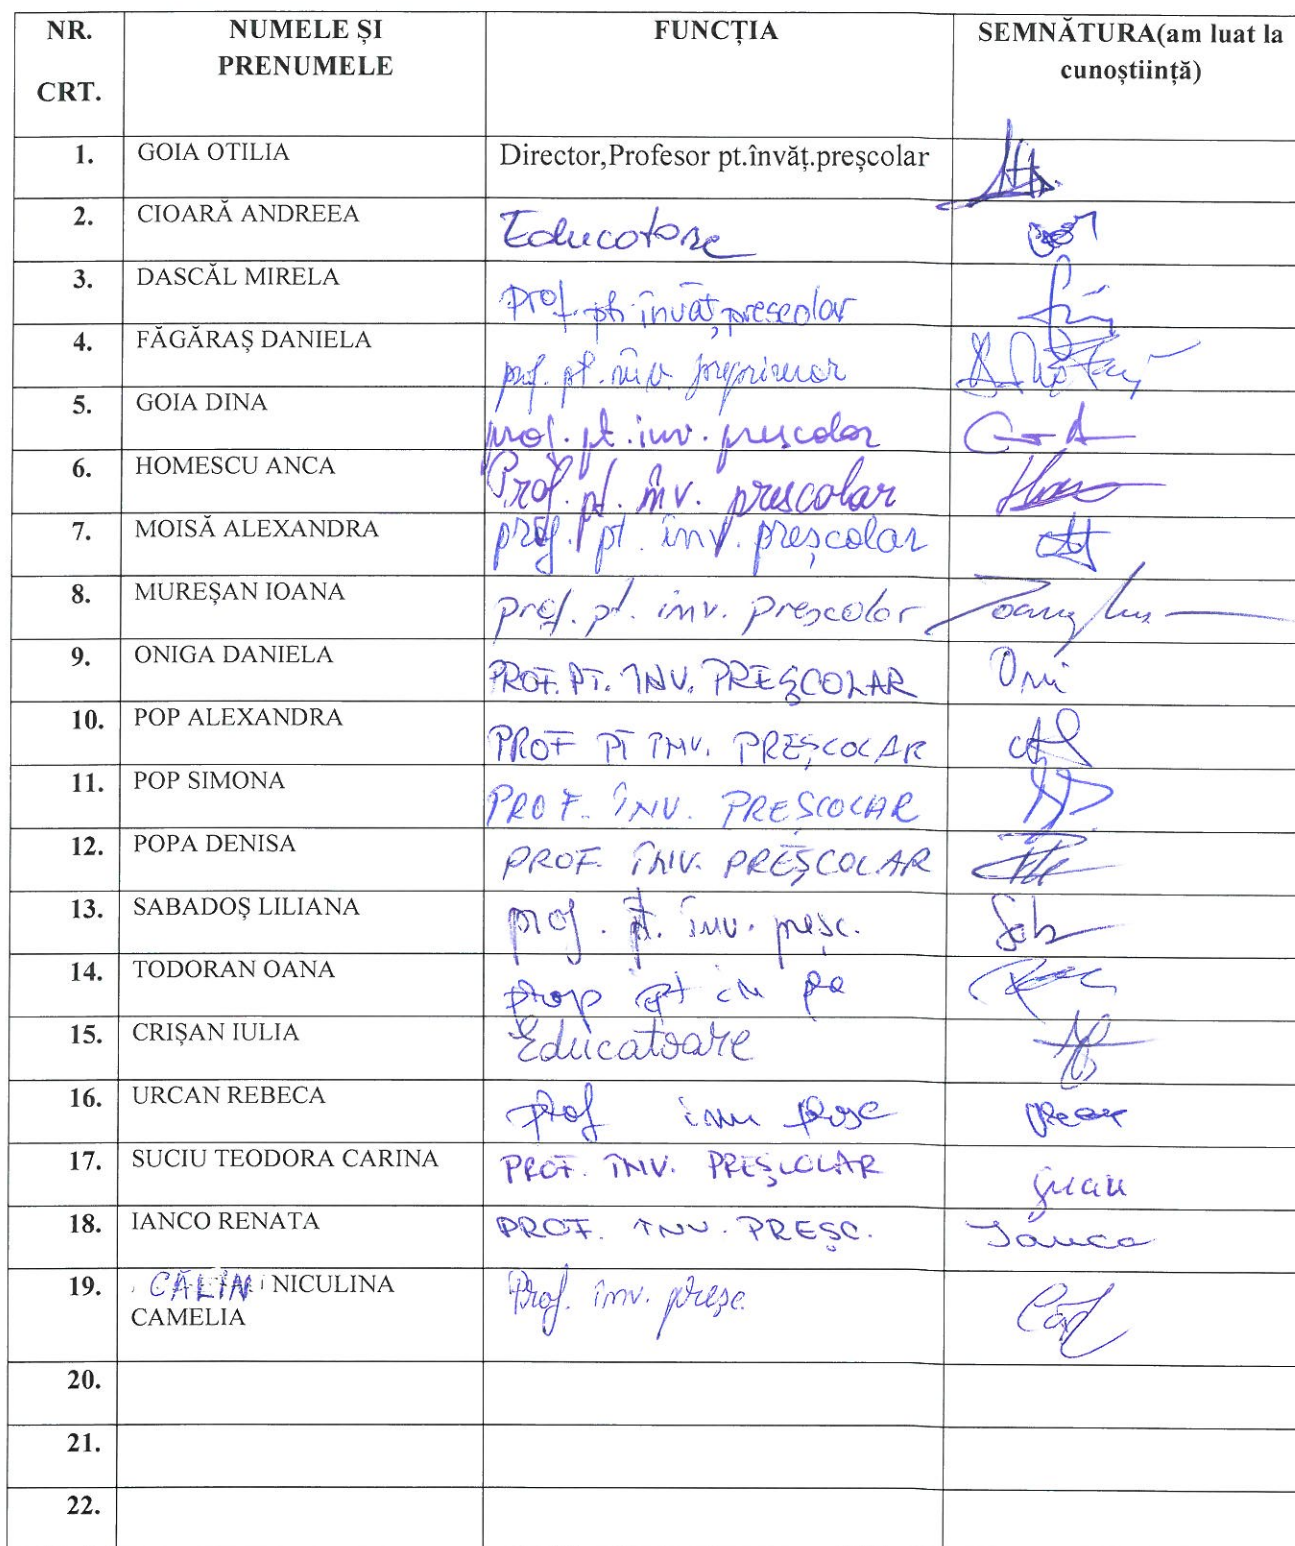 NR. CRT. NUMELE ȘI PRENUMELE FUNCȚIA SEMNĂTURA(am luat la cunoștiință)
1. GOIA OTILIA Director,Profesor pt.învăț.preșcolar
2. CIOARĂ ANDREEA Educatore
3. DASCĂL MIRELA Prof. pt. învăț preșcolar
4. FĂGĂRAȘ DANIELA prof. pt. înv. preprimar
5. GOIA DINA prof. pt. inv. prescolar
6. HOMESCU ANCA Prof. pt. înv. prescolar
7. MOISĂ ALEXANDRA prof. pt. înv. preșcolar
8. MUREȘAN IOANA prof. pt. inv. preșcolar Ioana
9. ONIGA DANIELA PROF. PT. ÎNV. PREȘCOLAR Oni
10. POP ALEXANDRA PROF PT ÎNV. PREȘCOLAR
11. POP SIMONA PROF. ÎNV. PRESCOLAR
12. POPA DENISA PROF. ÎNV. PREȘCOLAR
13. SABADOȘ LILIANA prof. pt. înv. presc. Sab
14. TODORAN OANA prop pt in pe
15. CRIȘAN IULIA Educatoare
16. URCAN REBECA prof inv presc
17. SUCIU TEODORA CARINA PROF. ÎNV. PREȘCOLAR
18. IANCO RENATA PROF. ÎNV. PREȘC. Ianco
19. CĂLIN NICULINA Prof. înv. preșc.
CAMELIA
20.
21.
22.